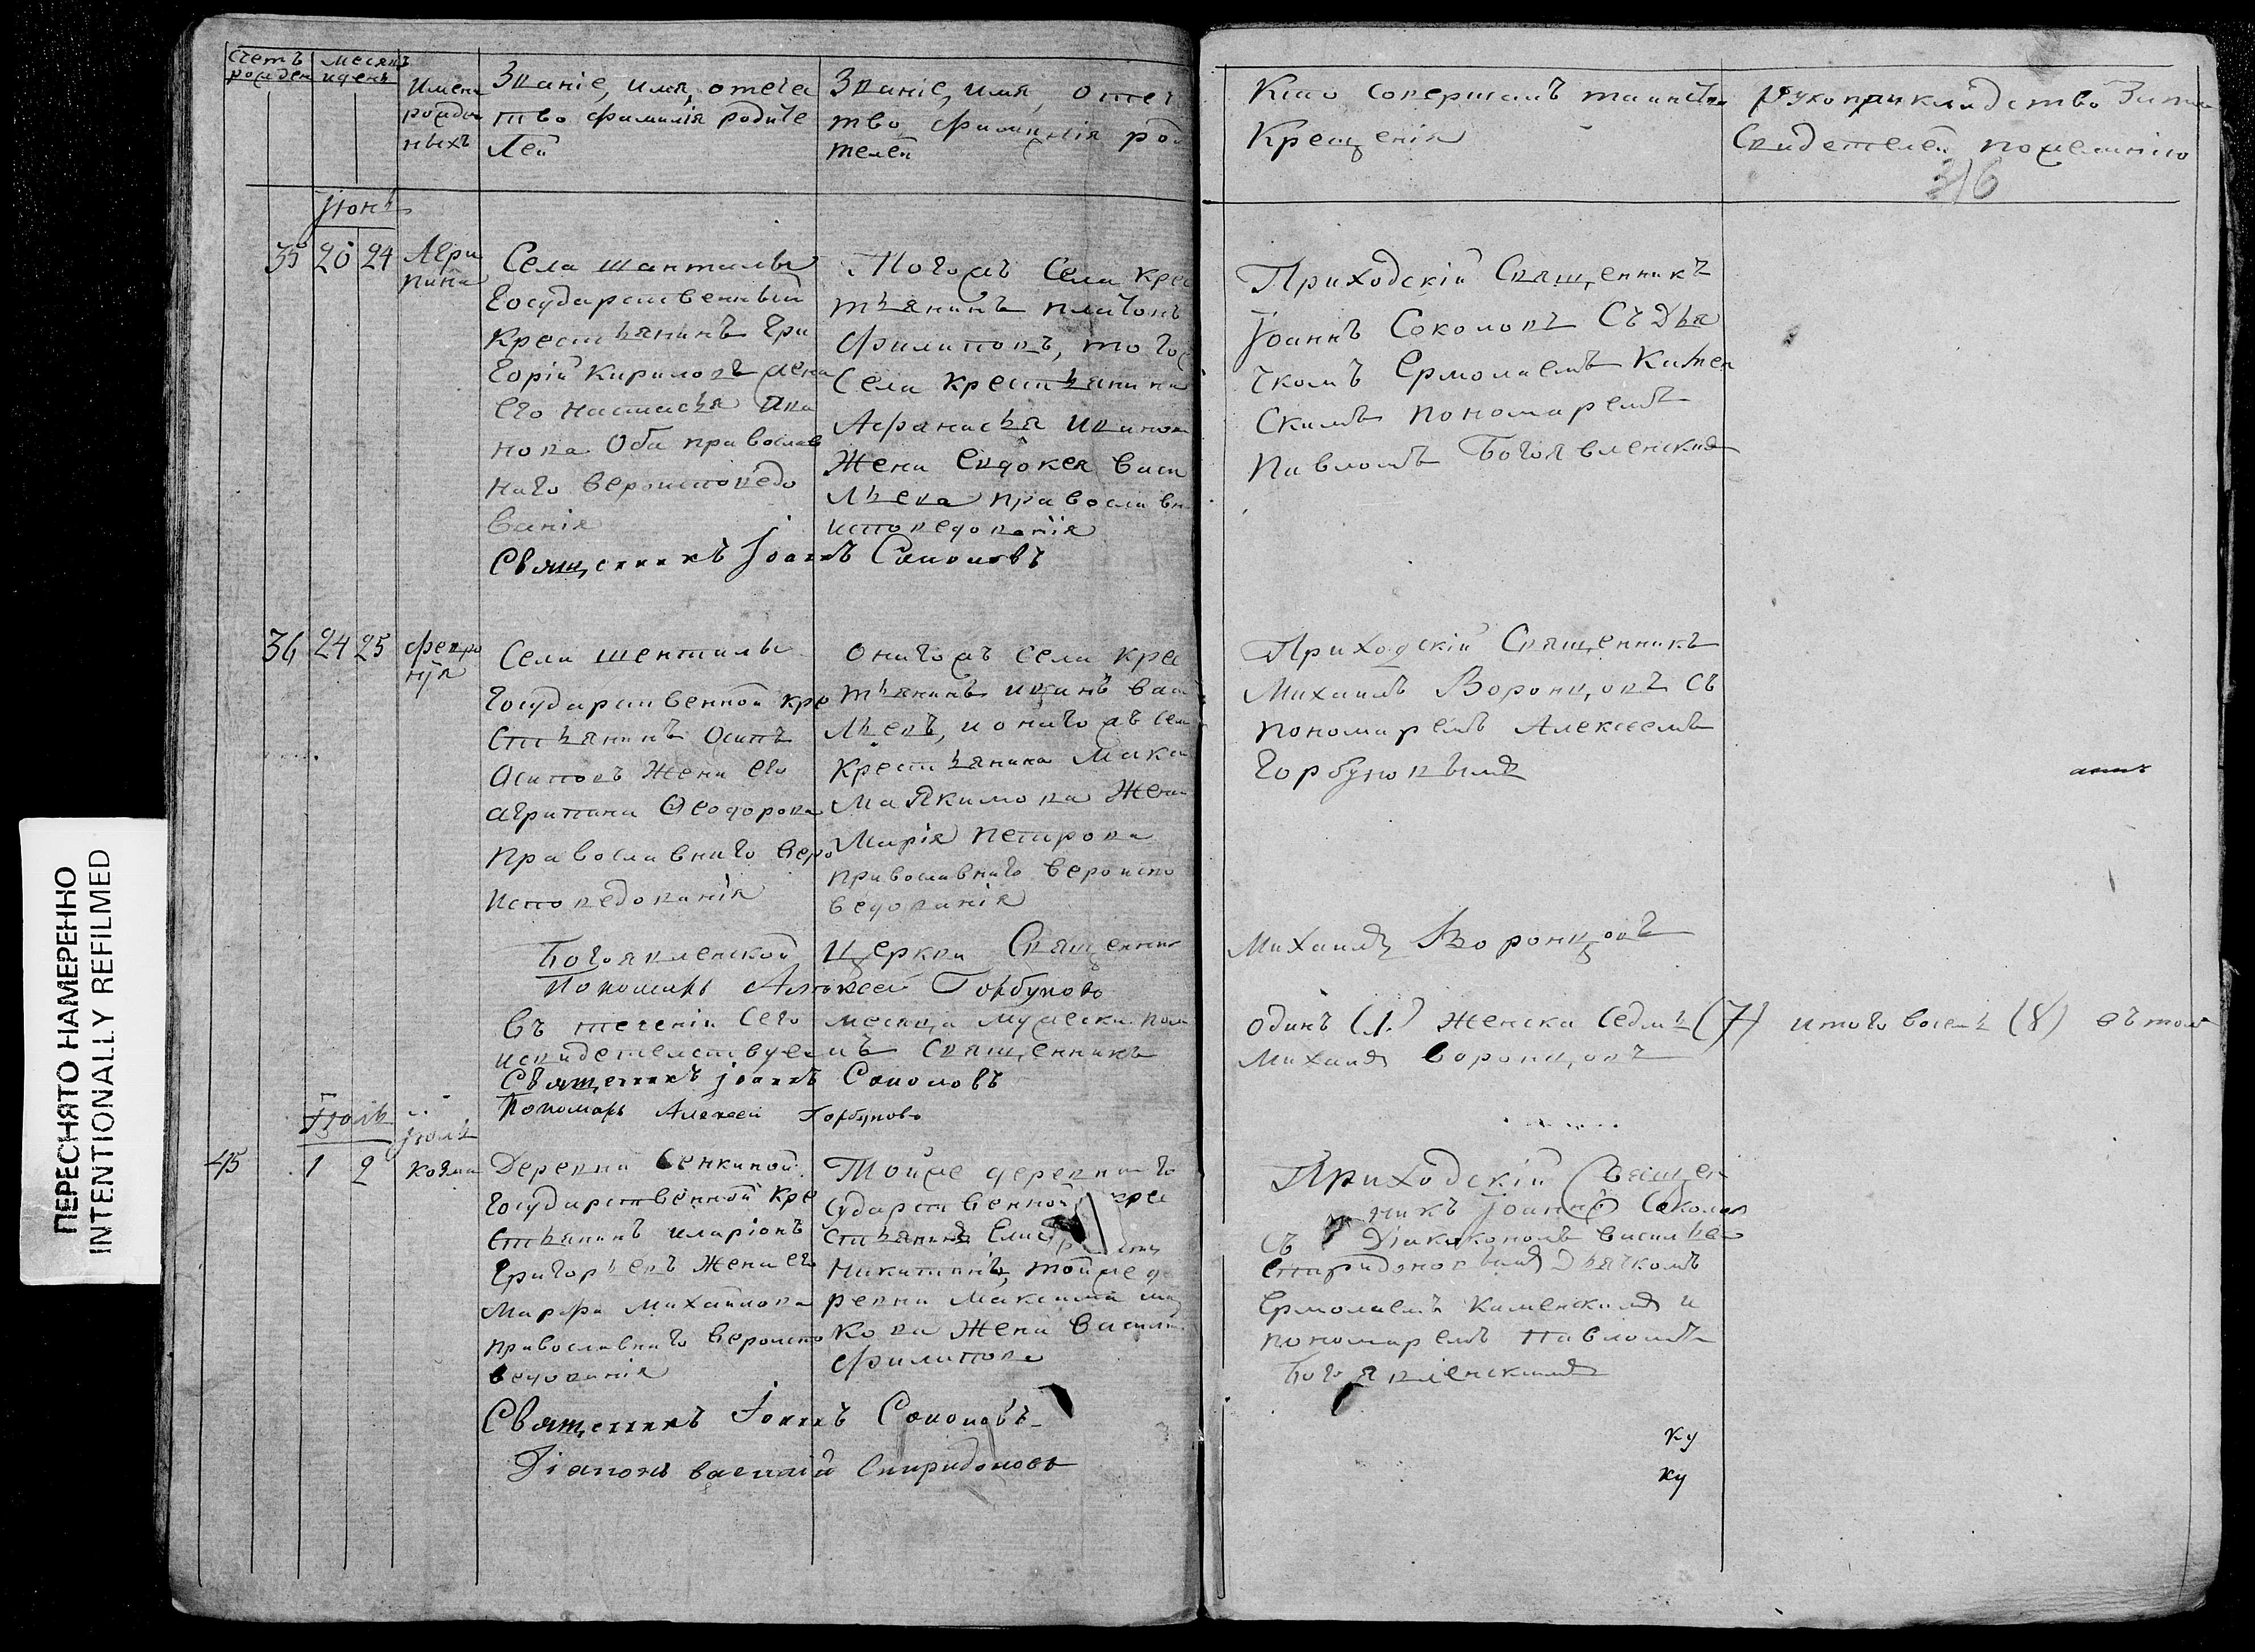 ПЕРЕСНЯТО НАМЕРЕННО
INTENTIONALLY REFILMED
Счетъ рожден
месяцъ и день
Имена рожденныхъ
Званіе, имя, отече
тво фамилія родите
лей
Званіе, имя, отеч
тво, фамилія род
телей
Кто совершалъ таинство
Крещенія
Рукоприкладство
Свидетелей пожеланію
316
Іюнь
35 20 24
Агри
пина
Села шантилы
Государственный
Крестьянинъ Гри
горій Кириловъ жена
его Настасья Ива
нова Оба православ
наго вероисповедо
ванія
Тогожъ Села крес
тьянинъ платонъ
Филиповъ, тогоже
Села крестьянина
Афанасья Иванова
Жена Евдокея васи
льева православн
исповедованія
Священникъ Іоаннъ Соколовъ
Приходскій Священникъ
Іоаннъ Соколовъ Съ Дья
чкомъ Ермолаемъ Камен
скимъ пономаремъ
Павломъ Богоявленским
36 24 25
февро
нія
Села шентилы
Государственной кре
стьянинъ Осипъ
Осиповъ Жена его
агрипина Феодорова
православнаго веро
исповедованія
Онагожъ села крес
тьянинъ иванъ васи
льевъ, и онагожъ села
крестьянина Макси
ма Якимова Жена
Марія петрова
православнаго вероиспо
ведованія
Приходскій Священникъ
Михаилъ Воронцовъ Съ
пономаремъ Алексеемъ
Горбуновымъ
Богоявленской Церкви Священник Михаилъ Воронцовъ
Пономарь Алексей Горбуновъ
Въ течении Сего месяца мужеска пола одинъ (1.) женска седмь (7) итого восемь (8) въ томъ
исвидетелствуемъ Священникъ Михаилъ воронцовъ
Священникъ Іоаннъ Соколовъ
Пономарь Алексей Горбуновъ
Іюль
Іюль
45 1 2
козма
Деревни Сенкиной
Государственной кре
стьянинъ иларіонъ
Григорьевъ Жена его
Марфа Михайлова
православнаго вероиспо
ведования
Тойже деревни го
сударственной крес
стьянинъ
Никитинъ, тойже де
ревни Максима
кова Жена Васили
Филипова
Священникъ Іоаннъ Соколовъ
Діаконъ василій Спиридоновъ
Приходскій Священ
никъ Іоаннъ Соколов
съ Діакокономъ василье
спиридоновымъ Дьячкомъ
Ермолаемъ Каменскимъ и
пономаремъ Павломъ
Богоявленскимъ
ку
ку